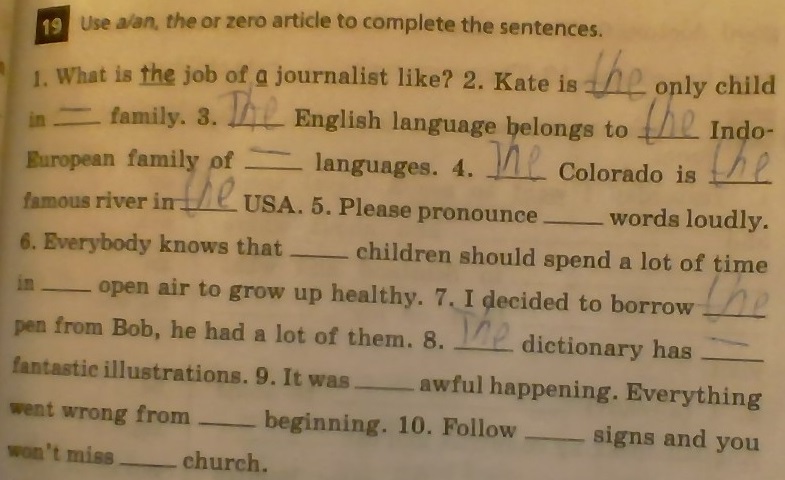 19 Use a/an, the or zero article to complete the sentences.
1. What is the job of a journalist like? 2. Kate is the only child
in — family. 3. The English language belongs to the Indo-
European family of — languages. 4. The Colorado is the
famous river in the USA. 5. Please pronounce ____ words loudly.
6. Everybody knows that ____ children should spend a lot of time
in ____ open air to grow up healthy. 7. I decided to borrow the
pen from Bob, he had a lot of them. 8. The dictionary has —
fantastic illustrations. 9. It was ____ awful happening. Everything
went wrong from ____ beginning. 10. Follow ____ signs and you
won't miss ____ church.